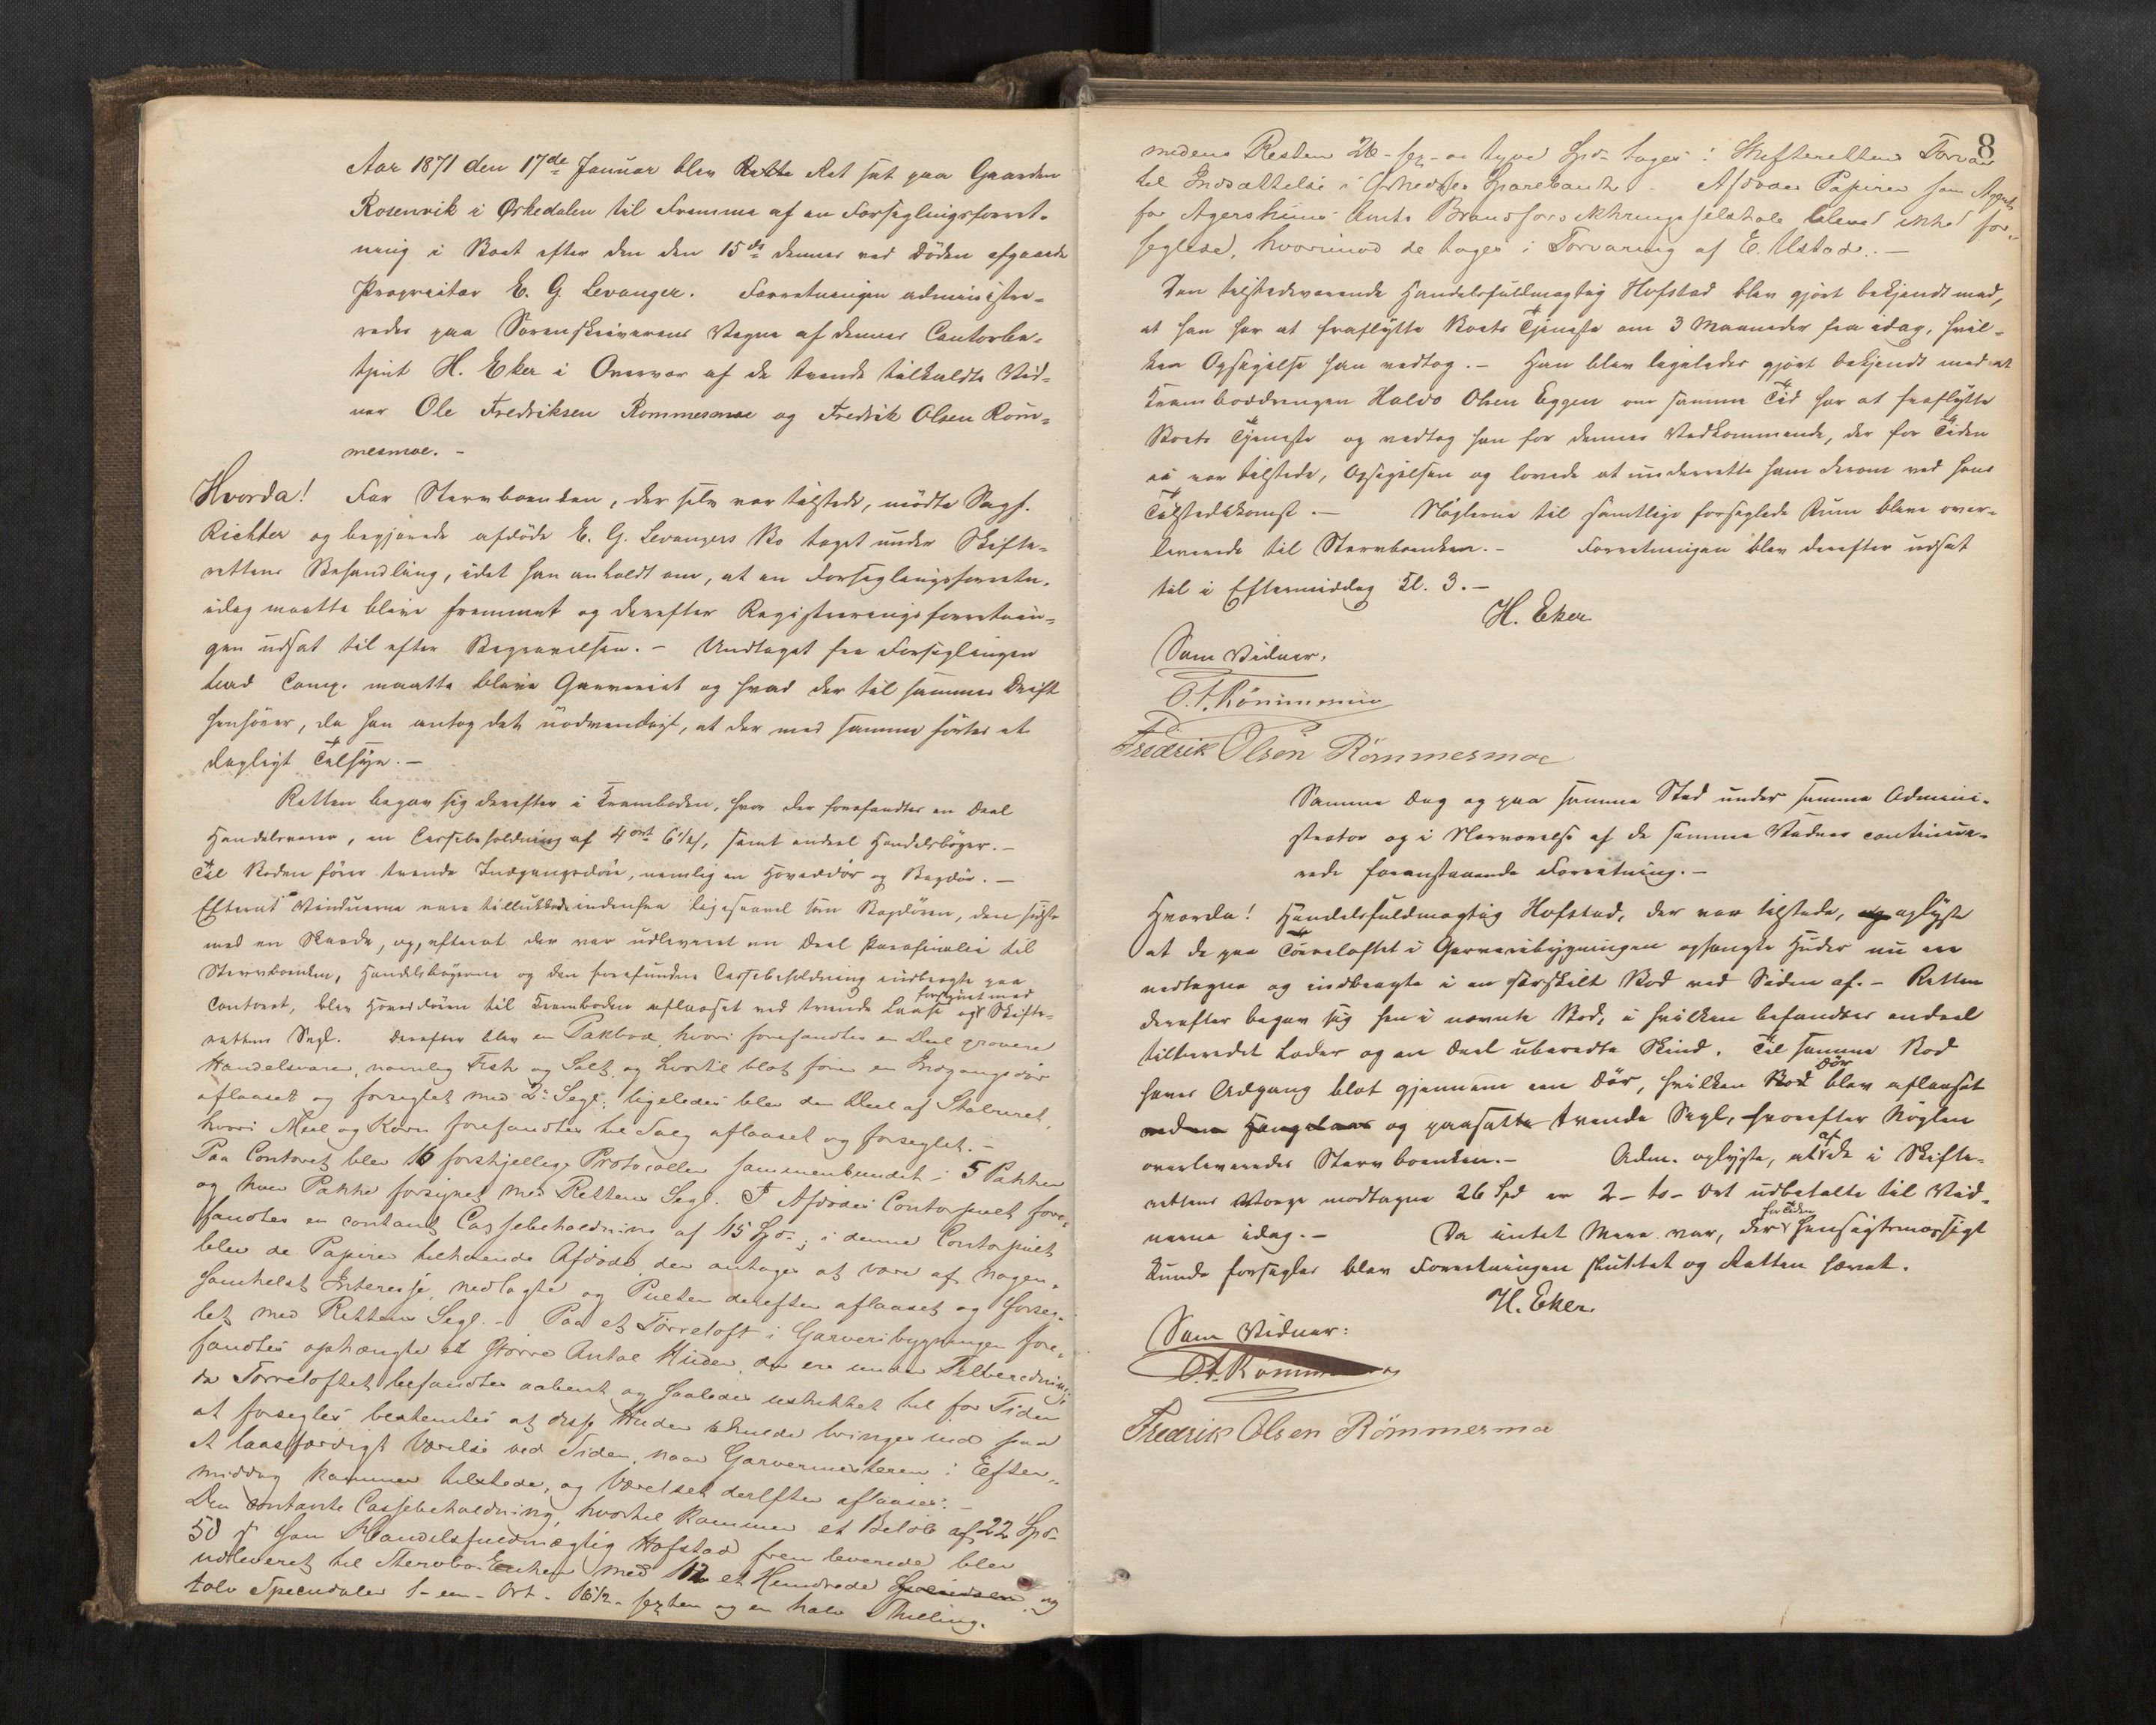 Aar 1871 den 17de Januar blev Rette Ret sat paa Gaarden
Rosenvik i Ørkedalen til Fremme af en Forseglingsforret-
ning i Boet efter den den 15de dennes ved Døden afgaaede
Proprietær E. G. Levanger. Forretningen administre-
redes paa Sorenskriverens Vegne af dennes Contorbe-
tjent H. Eker i Overvær af de tvende tilkaldte Vid-
ner Ole Fredriksen Rommesmoe og Fredrik Olsen Rom-
mesmoe. -
Hvorda! For Stervboenken, der selv var tilstede, mødte Sagf.
Richter og begjærede afdøde E. G. Levangers Bo taget under Skifte-
rettens Behandling, idet han anholdt om, at en Forseglingsforretn.
idag maatte blive fremmet og derefter Registreringsforretnin-
gen udsat til efter Begravelsen. - Undtaget fra Forseglingen
bad Comp. maatte blive Garveriet og hvad der til sammes Drift
henhører, da han antog det nødvendigt, at der med samme førtes et
dagligt Tilsyn. -
Retten begav sig derefter i Kramboden, hvor der forefandtes en Deel
Handelsvarer, en Cassebeholdning af 4 ort 6 1/2 s, samt endeel Handelsbøger. -
Til Boden fører tvende Indgangsdøre, nemlig en Hoveddør og Bagdør. -
Efterat Vinduerne vare tillukkede indenfra ligesaavel som Bagdøren, den sidste
med en Skaade, og, efterat der var udleveret en Deel Parafinolie til
Stervboenken, Handelsbøgerne og den forefundne Cassebeholdning indbragte paa
Contoret, blev Hoveddøren til Kramboden aflaaset ved tvende Laase og forsynet med Skifte-
rettens Segl. Derefter blev en Pakbod, hvori forefandtes en Deel grovere
Handelsvarer, navnlig Fisk og Salt, og hvortil blot fører en Indgangsdør
aflaaset og forseglet med 2de Segl; ligeledes blev den Deel af Stabburet,
hvori Meel og Korn forefandtes til Salg aflaaset og forseglet. -
Paa Contoret blev 16 forskjellige Protocoller sammenbundet i 5 Pakker
og hver Pakke forsynet med Rettens Segl. I Afdødes Contorpult fore-
fandtes en contant Cassebeholdning af 115 Spd.; i denne Contorpult
blev de Papirer tilhørende Afdøde, der antages at være af nogen-
somhelst Interesse, nedlagte og Pulten derefter aflaaset og forseg-
let med Rettens Segl. - Paa et Tørreloft i Garveribygningen fore-
fandtes ophængte et større Antal Huder, der ere under Tilberedning;
da Tørreloftet befandtes aabent og saaledes uskikket til for Tiden
at forsegles bestemtes at disse Huder skulde bringes ned paa
et laasfærdigt Værelse ved Siden, naar Garvermesteren i Efter-
middag kommer tilstede, og Værelset derefter aflaases. -
Den contante Cassebeholdning, hvortil kommer et Beløb af 22 Spd.
50 s som Handelsfuldmægtig Hofstad fremleverede blev
udleveret til Stervbo Enken med 112 et Hundrede Speciedaler og
tolv Speciedaler 1 - een - Ort - 16 1/2 - sexten og en halv Skilling.
8
medens Resten 26 - sex og tyve Spd. toges i Skifterettens Forvar
til Indsættelse i Ørkedalens Sparebank. - Afdødes Papirer som Agent
for Agershuus Amts Brandforsikkringsselskab bleve ikke for-
seglede, hvorimod de toges i Forvaring af E. Ustad. -
Den tilstedeværende Handelsfuldmægtig Hofstad blev gjort bekjendt med,
at han har at fraflytte Boets Tjeneste om 3 Maaneder fra idag, hvil-
ken Opsigelse han vedtog. - Han blev ligeledes gjort bekjendt med at
Kramboddrengen Haldo Olsen Eggen om samme Tid har at fraflytte
Boets Tjeneste og vedtog han for dennes Vedkommende, der for Tiden
ei var tilstede, Opsigelsen og lovede at underrette ham derom ved hans
Tilstedekomst. - Nøglerne til samtlige forseglede Rum bleve over-
leverede til Stervboenken. - Forretningen blev derefter udsat
til i Eftermiddag Kl. 3. -
H. Eker
Som Vidner:
O. F. Rømmesmo
Fredrik Olsen Rømmesmoe
Samme Dag og paa samme Sted under samme Admini-
strator og i Nærværelse af de samme Vidner continue-
rede foranstaaende Forretning. -
Hvorda! Handelsfuldmægtig Hofstad, der var tilstede, og oplyste
at de paa Tørreloftet i Garveribygningen ophængte Huder nu ere
nedtagne og indbragte i en særskilt Bod ved Siden af. - Retten
derefter begav sig hen i nævnte Bod, i hvilken befandtes endeel
tilberedet Læder og en Deel uberedte Skind. Til samme Bod
haves Adgang blot gjennem een Dør, hvilken Bod Dør blev aflaaset
med en Hængelaas og paasatte tvende Segl, hvorefter Nøglen
overleveredes Stervboenken. - Adm. oplyste, at af de i Skifte-
rettens Værge modtagne 26 Spd er 2 - to - Ort udbetalte til Vid-
nerne idag. - Da intet Mere var, der for Tiden hensigtsmæssigt
kunde forsegles blev Forretningen sluttet og Retten hævet.
H. Eker
Som Vidner:
O. F. Rømmesmo
Fredrik Olsen Rømmesmoe